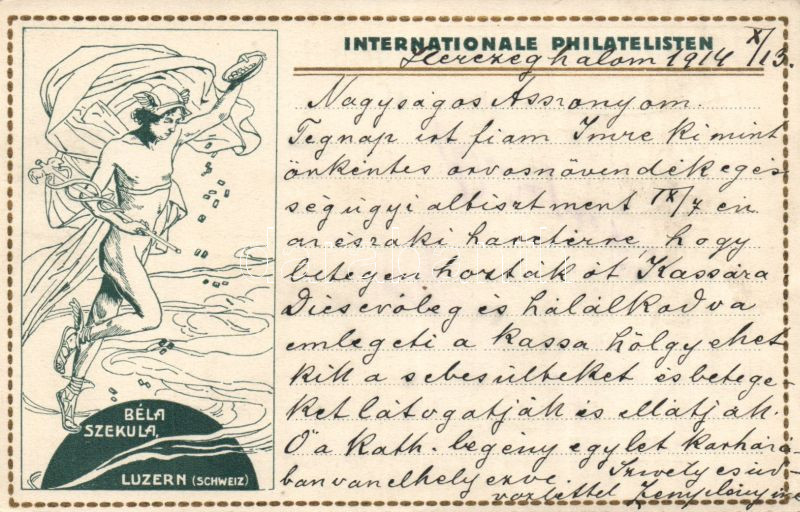 INTERNATIONALE PHILATELISTEN
Herczeghalom 1914 X/13.
Nagyságos Asszonyom.
Tegnap írt fiam Imre ki mint
önkéntes orvosnövendék egés-
ségügyi altisztment IX/7 én
az északi harctérre, hogy
betegen hozták őt Kassára
Dicsérőleg és hálálkodva
emlegeti a Kassa hölgyeket
kik a sebesülteket és betege-
ket látogatják és ellátják.
Ő a Kath. legény egylet kórházá-
ban van elhelyezve. Szívélyes üd-
vözlettel Zemplényi
BÉLA
SZEKULA,
LUZERN (SCHWEIZ)